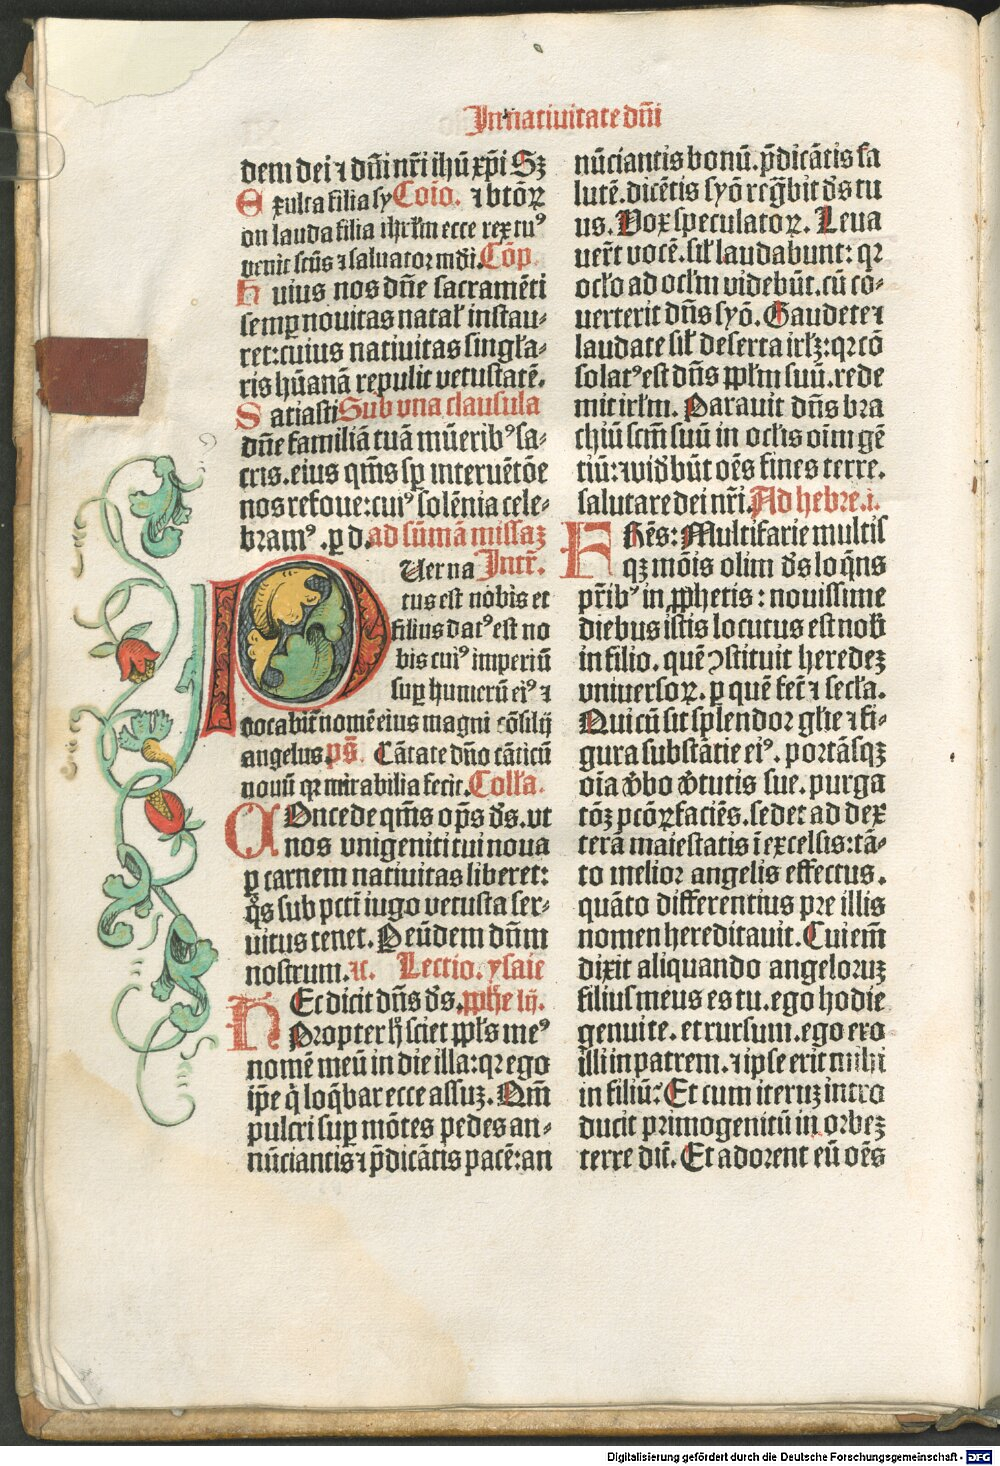 In natiuitate dn̄i
dem dei ⁊ dn̄i nr̄i ih̄u xp̄i Sʒ
Exulta filia sy Cōio. ⁊ btōꝝ
on lauda filia ihrl̄m ecce rex tuꝰ
venit scūs ⁊ saluator mūdi. Cōp.
Huius nos dn̄e sacramēti
semꝑ nouitas natal̄ instau-
ret: cuius natiuitas singl̄a-
ris hūanā repulit vetustatē.
Satiasti Sub vna clausula
dn̄e familiā tuā mūeribꝰ sa-
cris. eius qm̄s sꝑ interuētōe
nos refoue: cuiꝰ solēnia cele-
bramꝰ. p d. ad sūmā missaʒ
Puer na Intr̄.
tus est nobis et
filius datꝰ est no
bis cuiꝰ imperiū
suꝑ humerū eiꝰ ⁊
vocabit̄ nomē eius magni cōsilij
angelus. p̄s. Cātate dn̄o cāticū
nouū qꝛ mirabilia fecit. Coll̄a.
COncede qm̄s op̄s ds̄. vt
nos vnigeniti tui noua
ꝑ carnem natiuitas liberet:
qs̄ sub pcc̄i iugo vetusta ser-
uitus tenet. P eūdem dn̄m
nostrum. ⁊c. Lectio. ysaie
HEc dicit dn̄s ds̄. ꝓphe lij.
Propter h̄ sciet ppl̄s meꝰ
nomē meū in die illa: qꝛ ego
ip̄e q̇ loq̄bar ecce assuʒ. Qm̄
pulcri suꝑ mōtes pedes an-
nūciantis ⁊ p̄dicātis pacē: an
nūciantis bonū. p̄dicātis sa
lutē. dicētis syō regb̄it ds̄ tu
us. Vox speculatoꝝ. Leua
uer̄t vocē. sil̄ laudabunt: qꝛ
ocl̄o ad ocl̄m videbūt. cū co-
uerterit dn̄s syō. Gaudete ⁊
laudate sil̄ deserta irl̄ʒ: qꝛ cō
solatꝰ est dn̄s ppl̄m suū. rede
mit irl̄m. Parauit dn̄s bra
chiū scm̄ suū in ocl̄is oīm gē
tiū: ⁊ vidb̄ūt oēs fines terre.
salutare dei nr̄i. Ad hebre. i.
FRēs: Multifarie multis
qʒ mōis olim ds̄ loq̄ns
pr̄ibꝰ in ꝓphetis: nouissime
diebus istis locutus est nob̄
in filio. quē ꝯstituit heredeʒ
vniuersoꝝ. ꝑ quē fec̄t ⁊ secl̄a.
Qui cū sit splendor gl̄ie ⁊ fi-
gura substātie eiꝰ. portāsqʒ
oīa v̄bo v̄tutis sue. purga
tōʒ pcōꝝ faciēs. sedet ad dex
terā maiestatis ī excelsis: tā-
to melior angelis effectus.
quāto differentius pre illis
nomen hereditauit. Cui em̄
dixit aliquando angeloruʒ
filius meus es tu. ego hodie
genui te. et rursum. ego ero
illi in patrem. ⁊ ipse erit mihi
in filiū? Et cum iteruʒ intro
ducit primogenitū in orbeʒ
terre dic̄t. Et adorent eū oēs
Digitalisierung gefördert durch die Deutsche Forschungsgemeinschaft - DFG